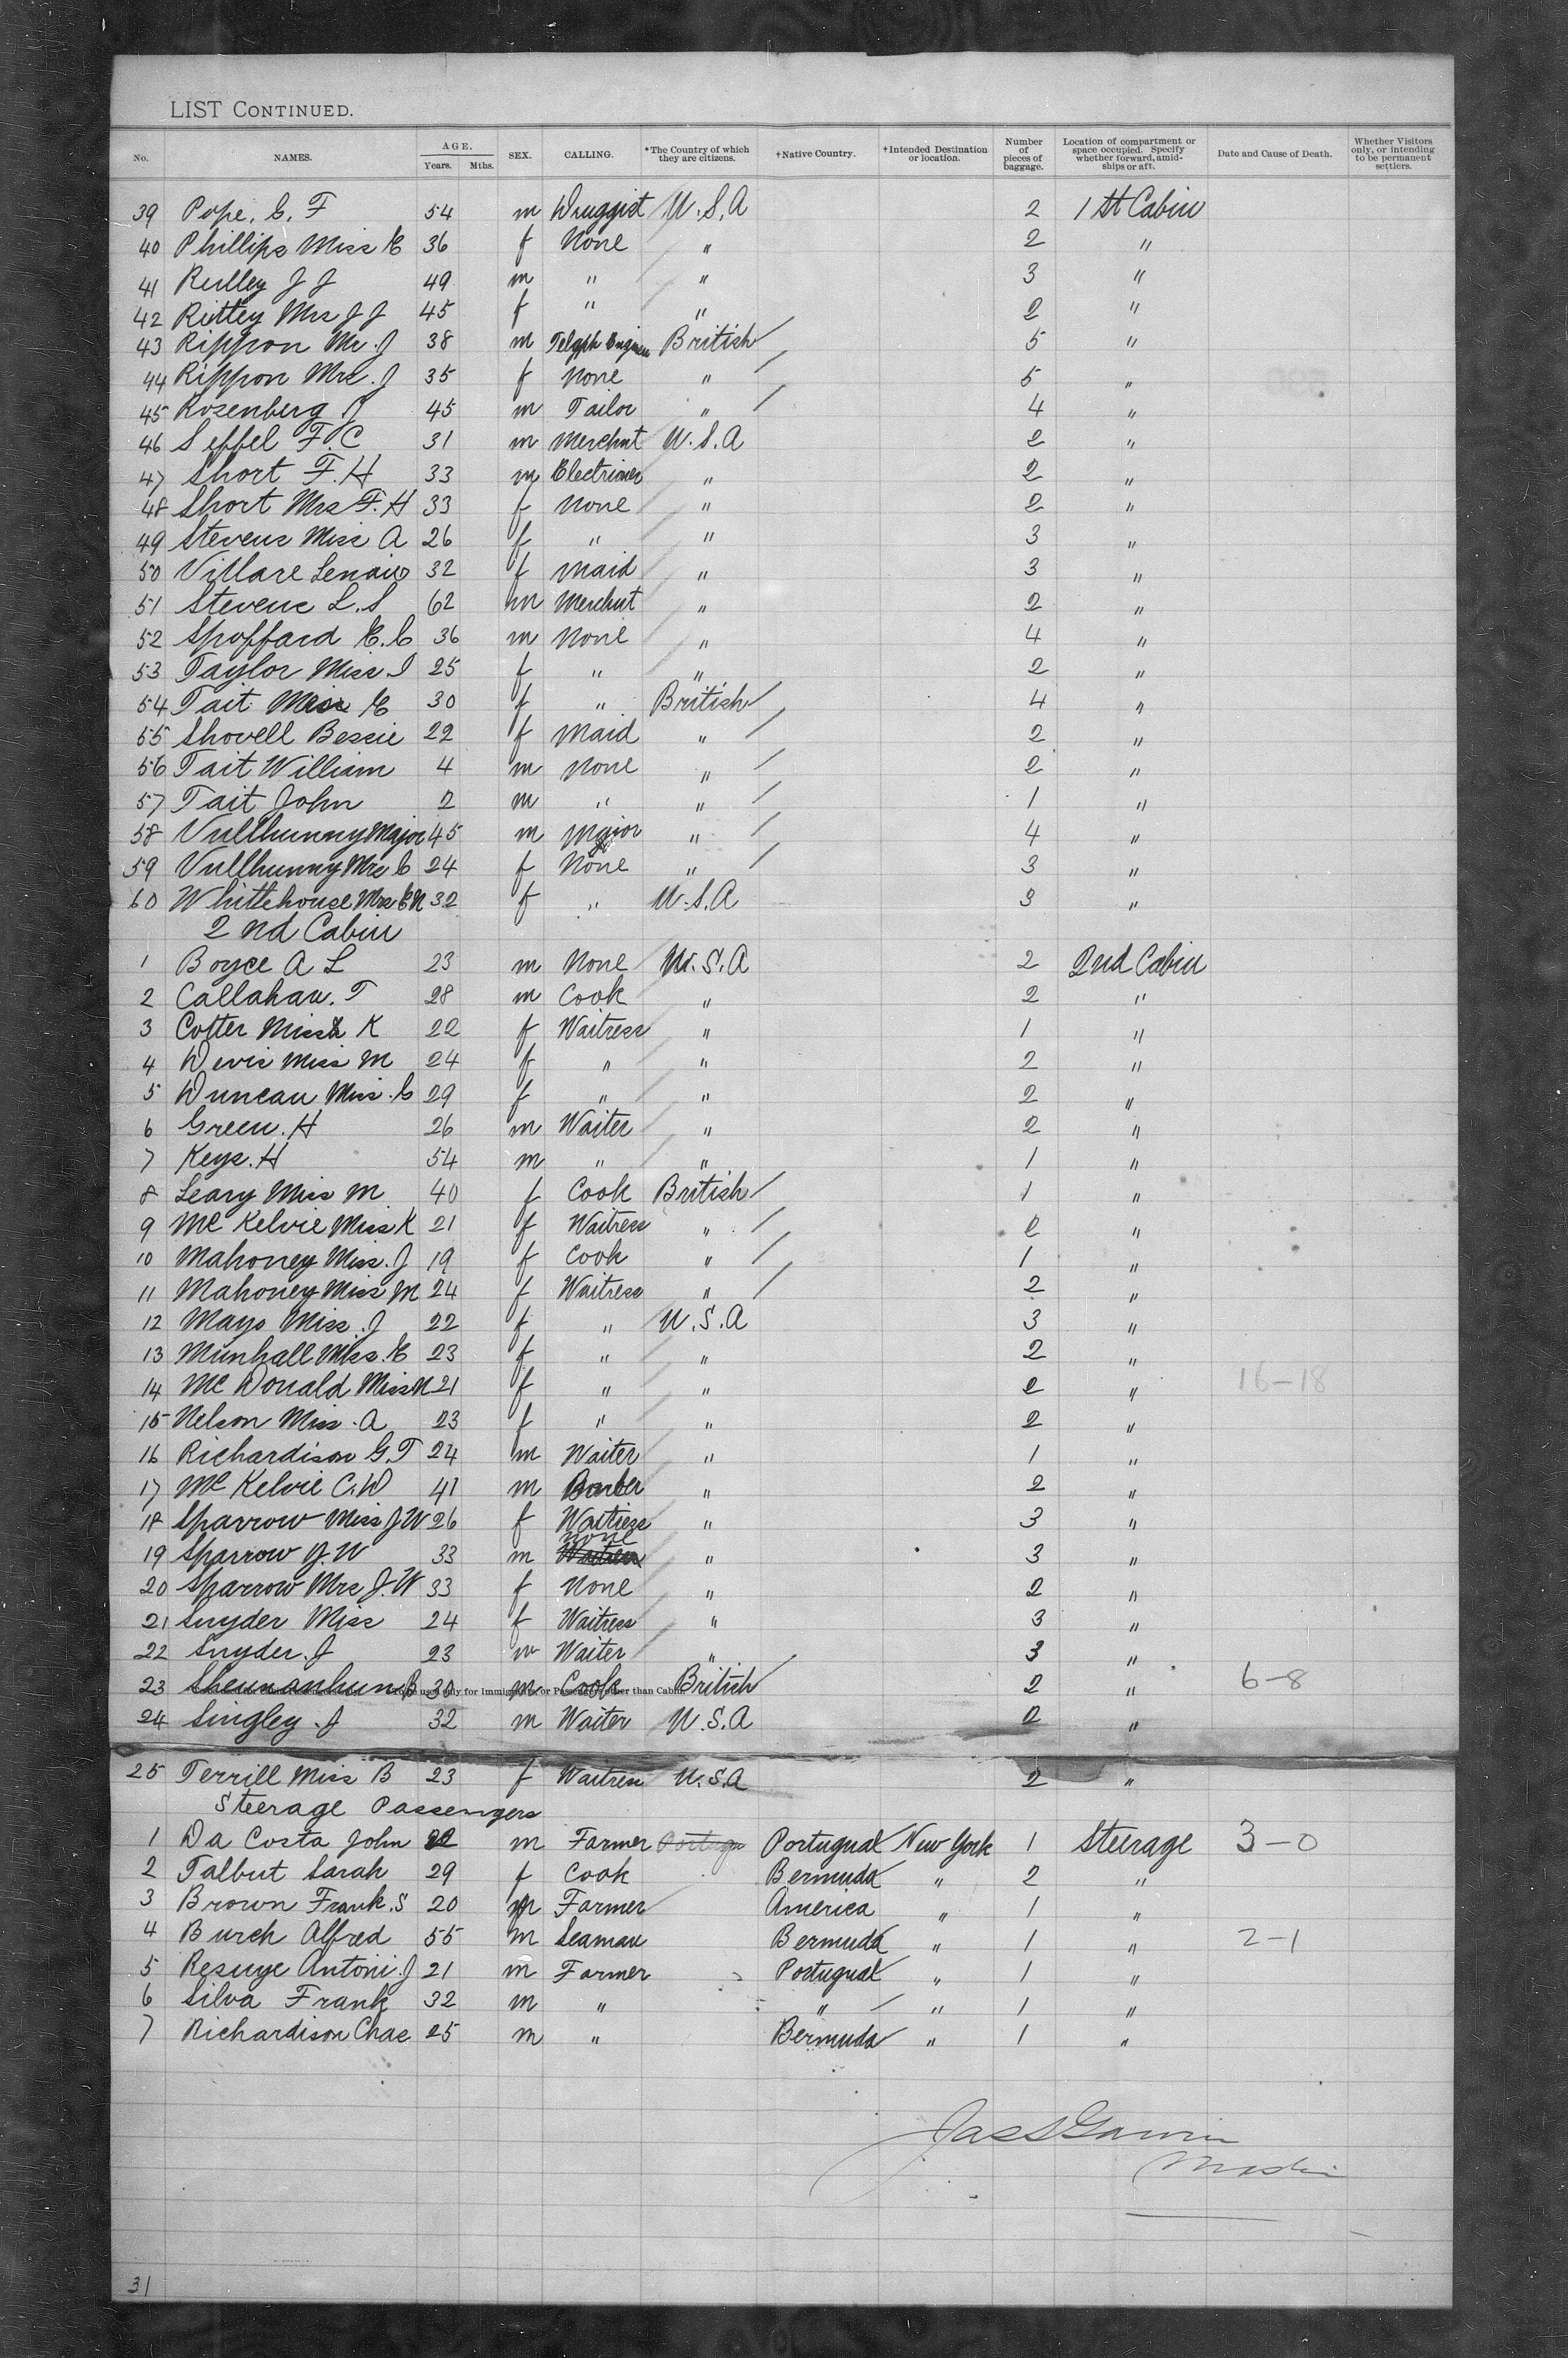 LIST CONTINUED.
No. NAMES. AGE. Years. Mths. SEX. CALLING. *The Country of which they are citizens. †Native Country. †Intended Destination or location. Number of pieces of baggage. Location of compartment or space occupied. Specify whether forward, amidships or aft. Date and Cause of Death. Whether Visitors only, or intending to be permanent settlers.
39 Pope, C. F 54 m Druggist U.S.A 2 1 St Cabin
40 Phillips Miss E 36 f None " 2 "
41 Rulley J J 49 m " " 3 "
42 Rittey Mrs J J 45 f " " 2 "
43 Rippon Mr. J 38 m Telgph Engineer British 5 "
44 Rippon Mrs. J 35 f None " 5 "
45 Rosenberg J 45 m Tailor " 4 "
46 Seffel F. C 31 m Merchnt U.S.A 2 "
47 Short F. H 33 m " 2 "
48 Short Mrs F. H 33 f None " 2 "
49 Stevens Miss A 26 f " " 3 "
50 Villare 32 f Maid " 3 "
51 Stevens L. S 62 m Merchnt " 2 "
52 Spoffard E. C 36 m None " 4 "
53 Taylor Miss I 25 f " " 2 "
54 Tait Miss E 30 f " British 4 "
55 Shovell Bessie 22 f Maid " 2 "
56 Tait William 4 m None " 2 "
57 Tait John 2 m " " 1 "
58 Vullhunny Major 45 m Major " 4 "
59 Vullhunny Mrs C 24 f None " 3 "
60 Whittehouse Mrs E N 32 f " U.S.A 3 "
2 nd Cabin
1 Boyce A L 23 m None U.S.A 2 2nd Cabin
2 Callahan. T 28 m Cook " 2 "
3 Cotter Miss K 22 f Waitress " 1 "
4 Devis Miss M 24 f " " 2 "
5 Duncan Miss. C 29 f " " 2 "
6 Green. H 26 m Waiter " 2 "
7 Keys. H 54 m " " 1 "
8 Leary Miss M 40 f Cook British 1 "
9 Mc Kelvie Miss K 21 f Waitress " 2 "
10 Mahoney Miss. J 19 f Cook " 1 "
11 Mahoney Miss M 24 f Waitress " 2 "
12 Mayo Miss. J 22 f " U.S.A 3 "
13 Munhall Miss. E 23 f " " 2 "
14 Mc Donald Miss N 21 f " " 2 " 16-18
15 Nelson Miss. A 23 f " " 2 "
16 Richardison G. T 24 m Waiter " 1 "
17 Mc Kelvie C. D 41 m Barber " 2 "
18 Sparrow Miss J W 26 f Waitress " 3 "
19 Sparrow J. W 33 m None " 3 "
20 Sparrow Mrs J. W 33 f None " 2 "
21 Snyder Miss 24 f Waitress " 3 "
22 Snyder. J 23 m Waiter " 3 "
23 30 m Cook British 2 " 6-8
24 Singley. J 32 m Waiter U.S.A 2 "
25 Terrill Miss B 23 f Waitress U.S.A 2 "
Steerage Passengers
1 Da Costa John m Farmer Portugual New York 1 Steerage 3-0
2 Talbut Sarah 29 f Cook Bermuda " 2 "
3 Brown Frank. S 20 m Farmer America " 1 "
4 Burch Alfred 55 m Seaman Bermuda " 1 " 2-1
5 Antoni. J 21 m Farmer Portugual " 1 "
6 Silva Frank 32 m " " " 1 "
7 Richardison Chas 25 m " Bermuda " 1 "
31